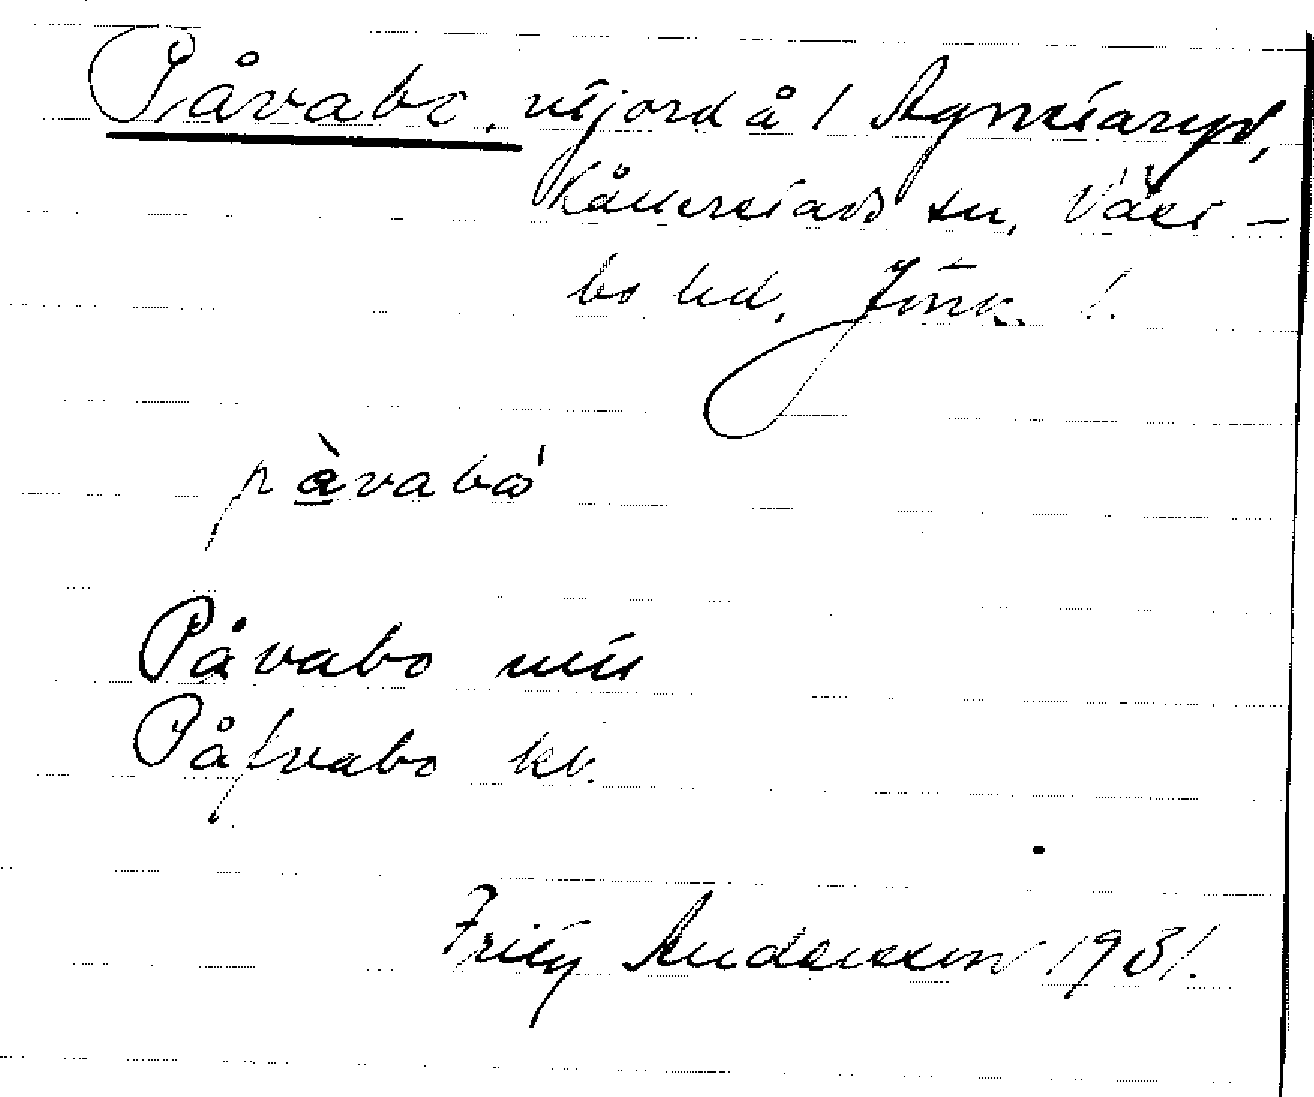 Påvabo, utjord å 1 Agnetaryd,
Kållerstads sn, Väst-
bo hd, Jönk. l.
pàvabω̍
Påvabo uts
Påfvabo kb.
Fritz Andersson 1931.